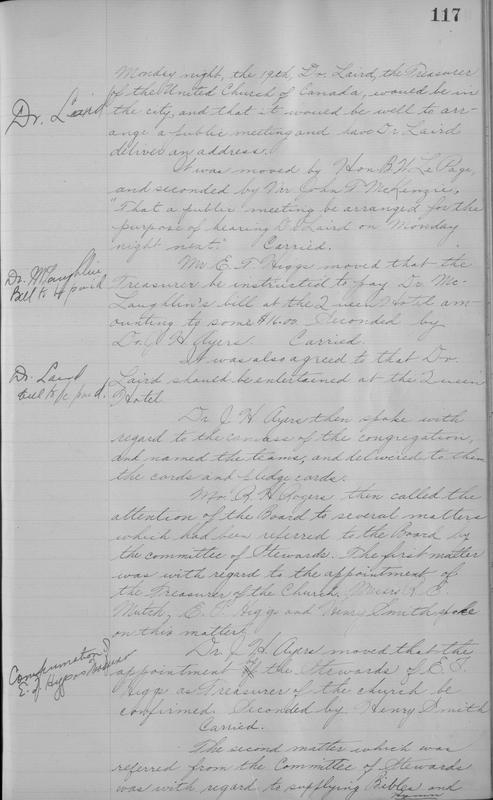 117
Monday night, the 19th, Dr. Laird, the Treasurer
of the United Church of Canada, would be in
Dr. Laird
the city, and that it would be well to arr-
ange a public meeting and have Dr. Laird
deliver an address.
It was moved by Hon B. W. LePage,
and seconded by Mr John T. McKenzie,
"That a public meeting be arranged for the
purpose of hearing Dr Laird on Monday
night next." Carried.
Dr. McLaughlin
Bill to be paid
Mr E. T. Higgs moved that the
Treasurer be instructed to pay Dr. Mc-
Laughlin's bill at the Queen Hotel am-
ounting to some $16.00. Seconded by
Dr. J H Ayers. Carried.
It was also agreed to that Dr.
Dr. Laird
bill to be paid.
Laird should be entertained at the Queen
Hotel.
Dr J. H Ayers then spoke with
regard to the canvass of the congregation,
and named the teams, and delivered to them
the cards and pledge cards.
Mr. R. H. Rogers then called the
attention of the Board to several matters
which had been referred to the Board by
the committee of Stewards. The first matter
was with regard to the appointment of
the Treasurer of the Church. Messrs R. E.
Mutch, E. T. Higgs and Henry Smith spoke
on this matter.
Confirmation of
E. T. Higgs
Dr. J. H. Ayers moved that the
appointment of the Stewards of E. T.
Higgs as Treasurer of the church be
confirmed. Seconded by Henry Smith
Carried.
The second matter which was
referred from the Committee of Stewards
was with regard to supplying Bibles and
Hymn